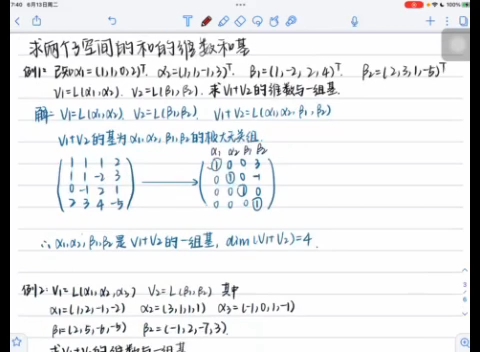 7:40 6月13日周二
100%
求两个子空间的和的维数和基
例1: 已知α₁=(1,1,0,2)ᵀ. α₂=(1,1,-1,3)ᵀ. β₁=(1,-2,2,4)ᵀ. β₂=(2,3,1,-5)ᵀ
V₁=L(α₁,α₂). V₂=L(β₁,β₂). 求V₁+V₂的维数与一组基.
解: V₁=L(α₁,α₂). V₂=L(β₁,β₂). V₁+V₂=L(α₁,α₂,β₁,β₂)
V₁+V₂的基为α₁,α₂,β₁,β₂的极大无关组.
α₁ α₂ β₁ β₂
1 1 1 2 → 1 0 0 3
1 1 -2 3 0 1 0 -1
0 -1 2 1 0 0 1 0
2 3 4 -5 0 0 0 1
∴ α₁,α₂,β₁,β₂是V₁+V₂的一组基, dim(V₁+V₂)=4.
例2: V₁=L(α₁,α₂,α₃) V₂=L(β₁,β₂) 其中
α₁=(1,2,-1,-2) α₂=(3,1,1,1) α₃=(-1,0,1,-1)
β₁=(2,5,-6,-5) β₂=(-1,2,-7,3).
求V₁+V₂的维数与一组基
3
/
6